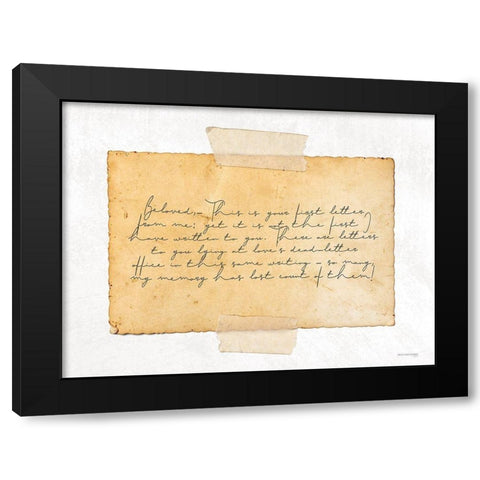 Beloved,- This is your first letter
from me; yet it is not the first
have written to you. There are letters
to you lying at love's dead-letter
office in this same writing - so many,
my memory has lost count of them!